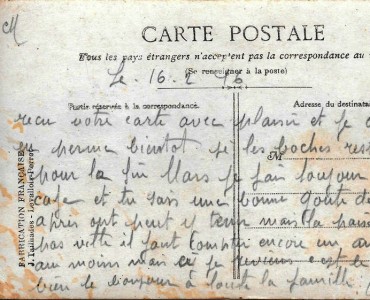 CARTE POSTALE
Tous les pays étrangers n'acceptent pas la correspondance au
(Se renseigner à la poste)
Le 16. 2 16
Partie réservée à la correspondance.
Adresse du destinata
recu votre carte avec plaisir et je
perme bientot si les boches res
M
pour la fin Mars je fais toujour
cafe et tu sais une bonne goute de
apres ont peut y tenir mais la pai
pas vette il faut compter encore un an
au moins mais si je reviens c'est le
bien le bonjour a toute la famille
FABRICATION FRANÇAISE
J. Tuillandes - Levallois-Perret